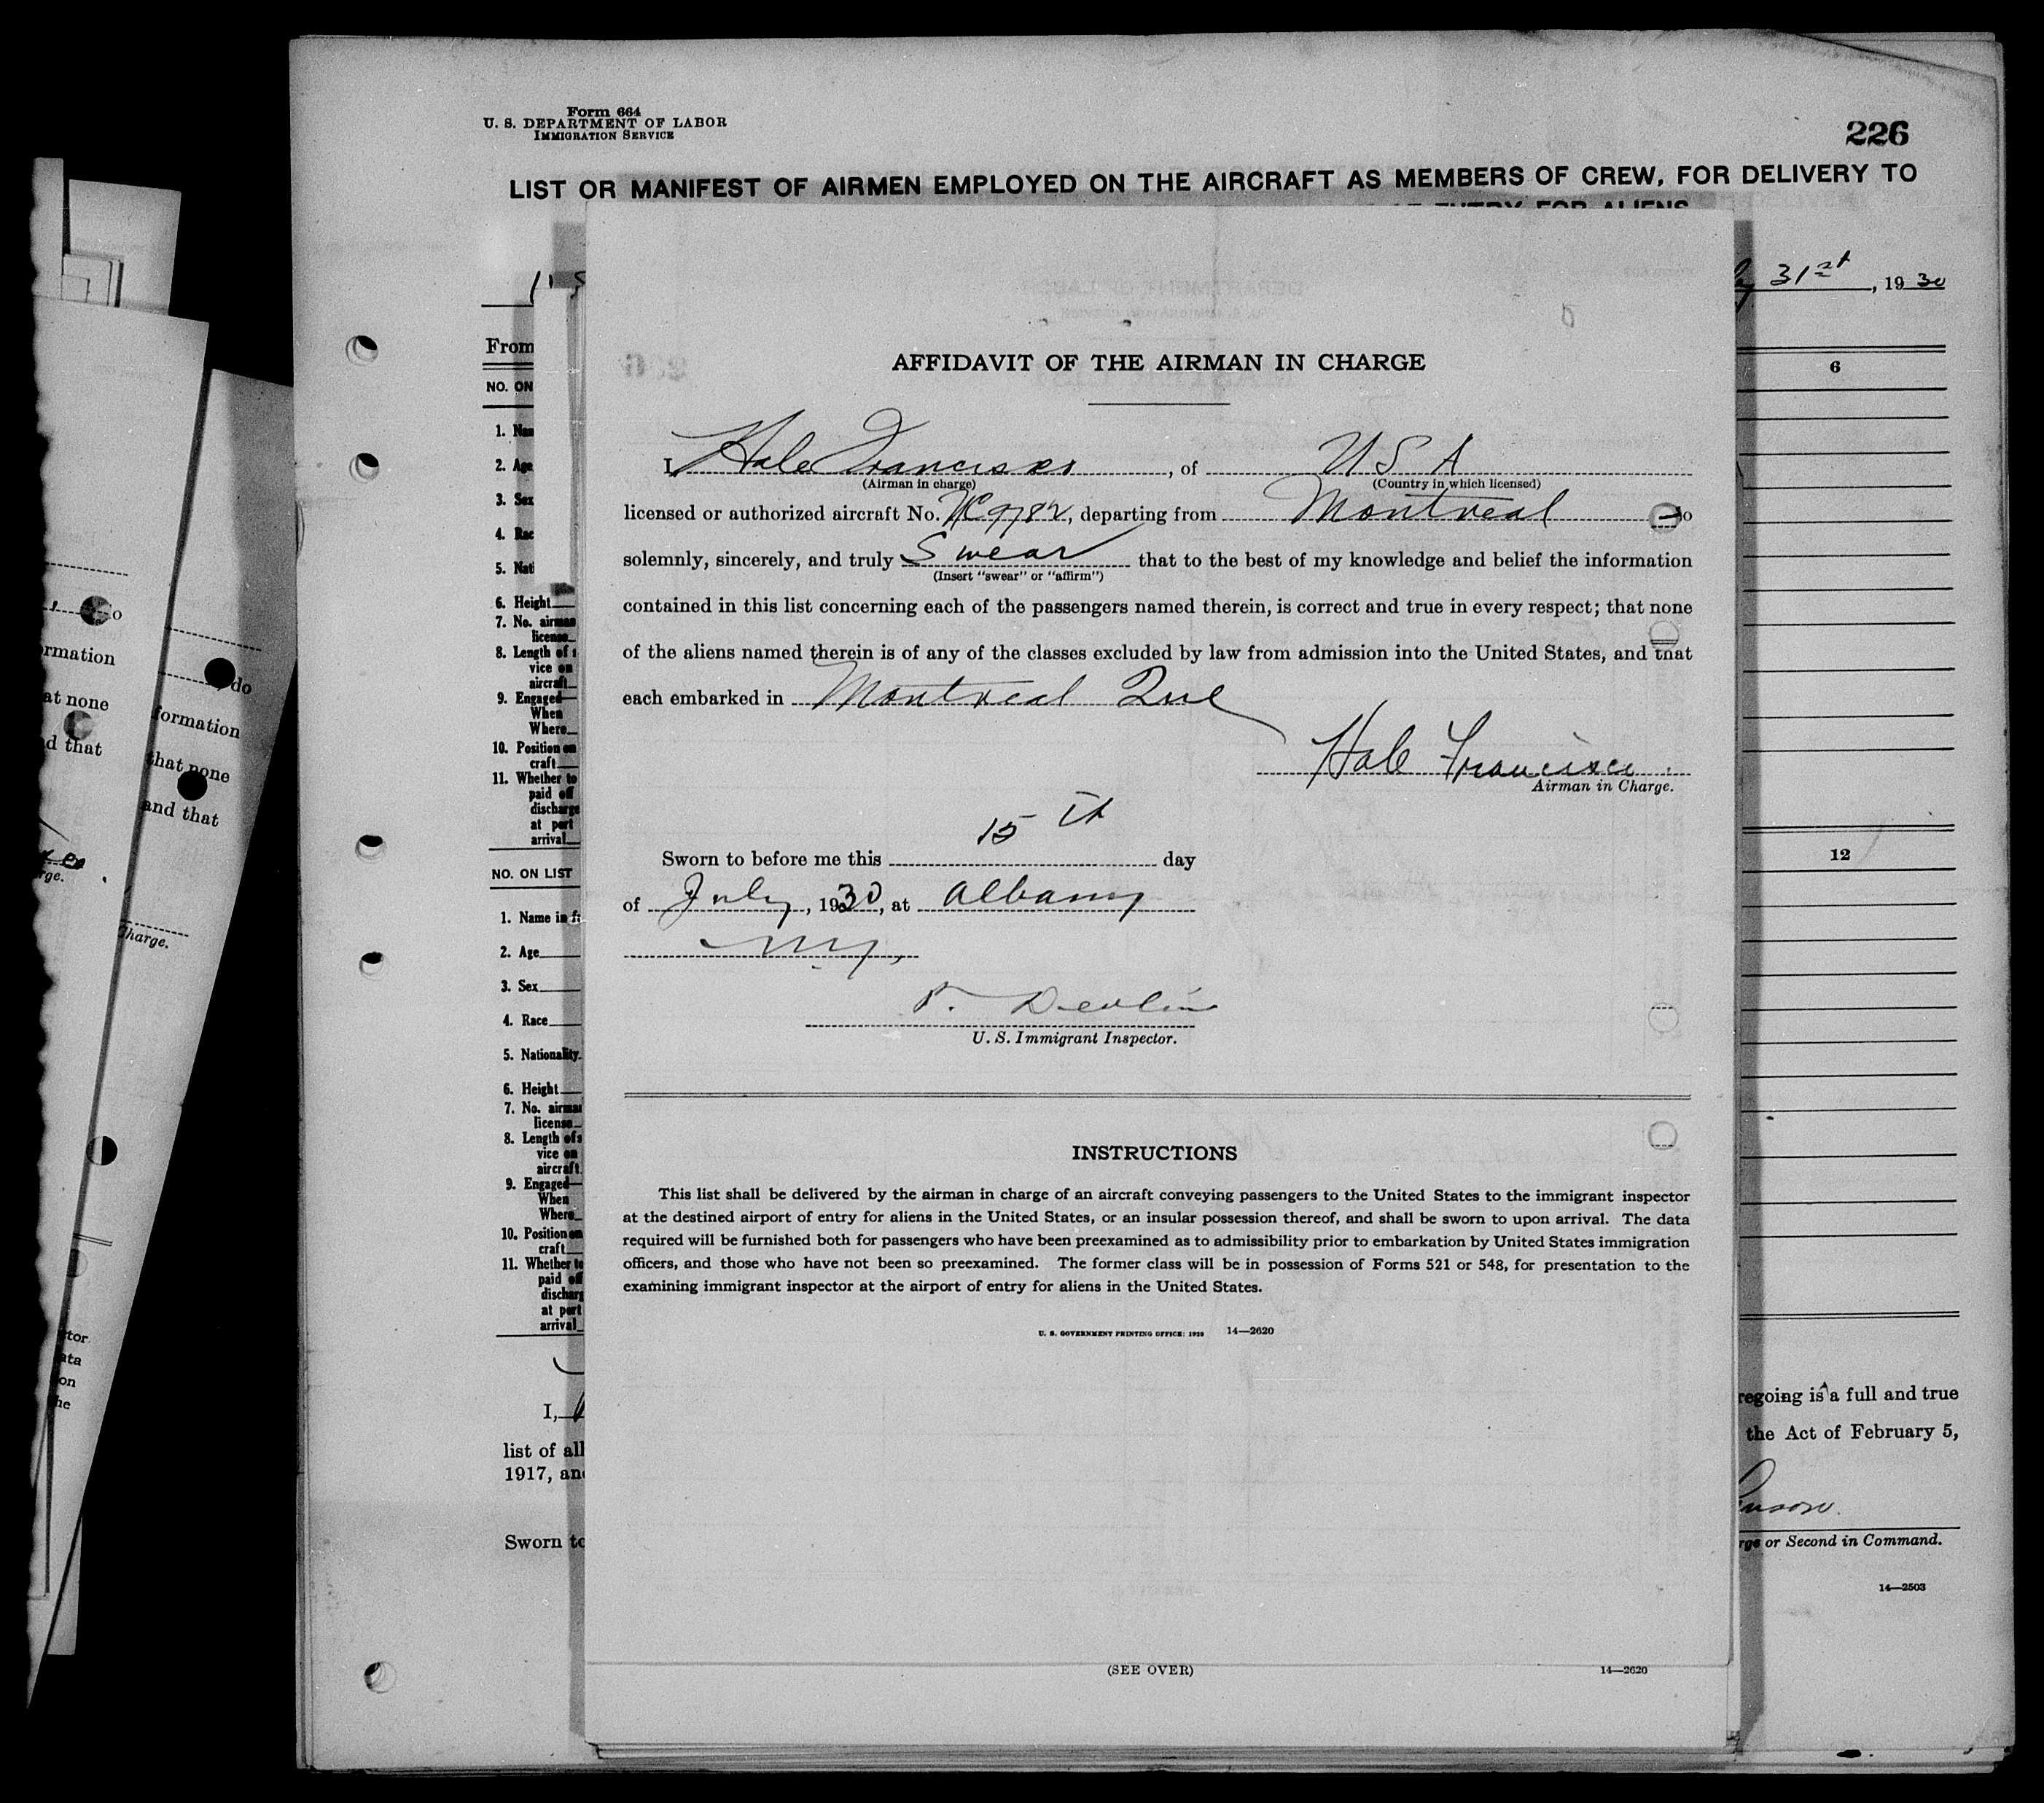 Form 664
U. S. DEPARTMENT OF LABOR
IMMIGRATION SERVICE
226
LIST OR MANIFEST OF AIRMEN EMPLOYED ON THE AIRCRAFT AS MEMBERS OF CREW, FOR DELIVERY TO
ENTRY FOR ALIENS
31st, 1930
From
NO. ON
6
1. Nam
2. Age
3. Sex
4. Rac
5. Nati
6. Height
7. No. airman
license
8. Length of s
vice on
aircraft
9. Engaged
When
Where
10. Position on
craft
11. Whether to
paid off
discharge
at port
arrival
NO. ON LIST
12
1. Name in f
2. Age
3. Sex
4. Race
5. Nationality
6. Height
7. No. airman
license
8. Length of s
vice on
aircraft
9. Engaged
When
Where
10. Position on
craft
11. Whether to
paid off
discharg
at port
arrival
I,
list of all
1917, and
Sworn to
regoing is a full and true
the Act of February 5,
rge or Second in Command.
14—2503
AFFIDAVIT OF THE AIRMAN IN CHARGE
I, Hale Francisco, of USA
(Airman in charge) (Country in which licensed)
licensed or authorized aircraft No. NC9782, departing from Montreal do
solemnly, sincerely, and truly Swear that to the best of my knowledge and belief the information
(Insert "swear" or "affirm")
contained in this list concerning each of the passengers named therein, is correct and true in every respect; that none
of the aliens named therein is of any of the classes excluded by law from admission into the United States, and that
each embarked in Montreal Que
Hale Francisco.
Airman in Charge.
Sworn to before me this 15th day
of July, 1930, at Albany
NY,
Devlin
U. S. Immigrant Inspector.
INSTRUCTIONS
This list shall be delivered by the airman in charge of an aircraft conveying passengers to the United States to the immigrant inspector
at the destined airport of entry for aliens in the United States, or an insular possession thereof, and shall be sworn to upon arrival. The data
required will be furnished both for passengers who have been preexamined as to admissibility prior to embarkation by United States immigration
officers, and those who have not been so preexamined. The former class will be in possession of Forms 521 or 548, for presentation to the
examining immigrant inspector at the airport of entry for aliens in the United States.
U. S. GOVERNMENT PRINTING OFFICE: 1929 14—2620
(SEE OVER)
14—2620
o
rmation
at none
d that
rge.
do
formation
that none
and that
Charge.
ctor
ata
on
he